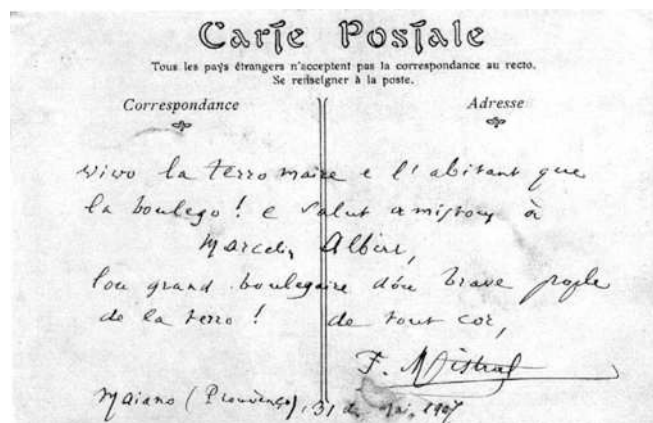 Carte Postale
Tous les pays étrangers n'acceptent pas la correspondance au recto.
Se renseigner à la poste.
Correspondance Adresse
vivo la terro maire e l'abitant que
la boulego! e salut amistous à
Marcelin Albert,
lou grand boulegaire dóu brave pople
de la terro! de tout cor,
F. Mistral
Maiano (Prouvènço), 31 de Mai, 1907